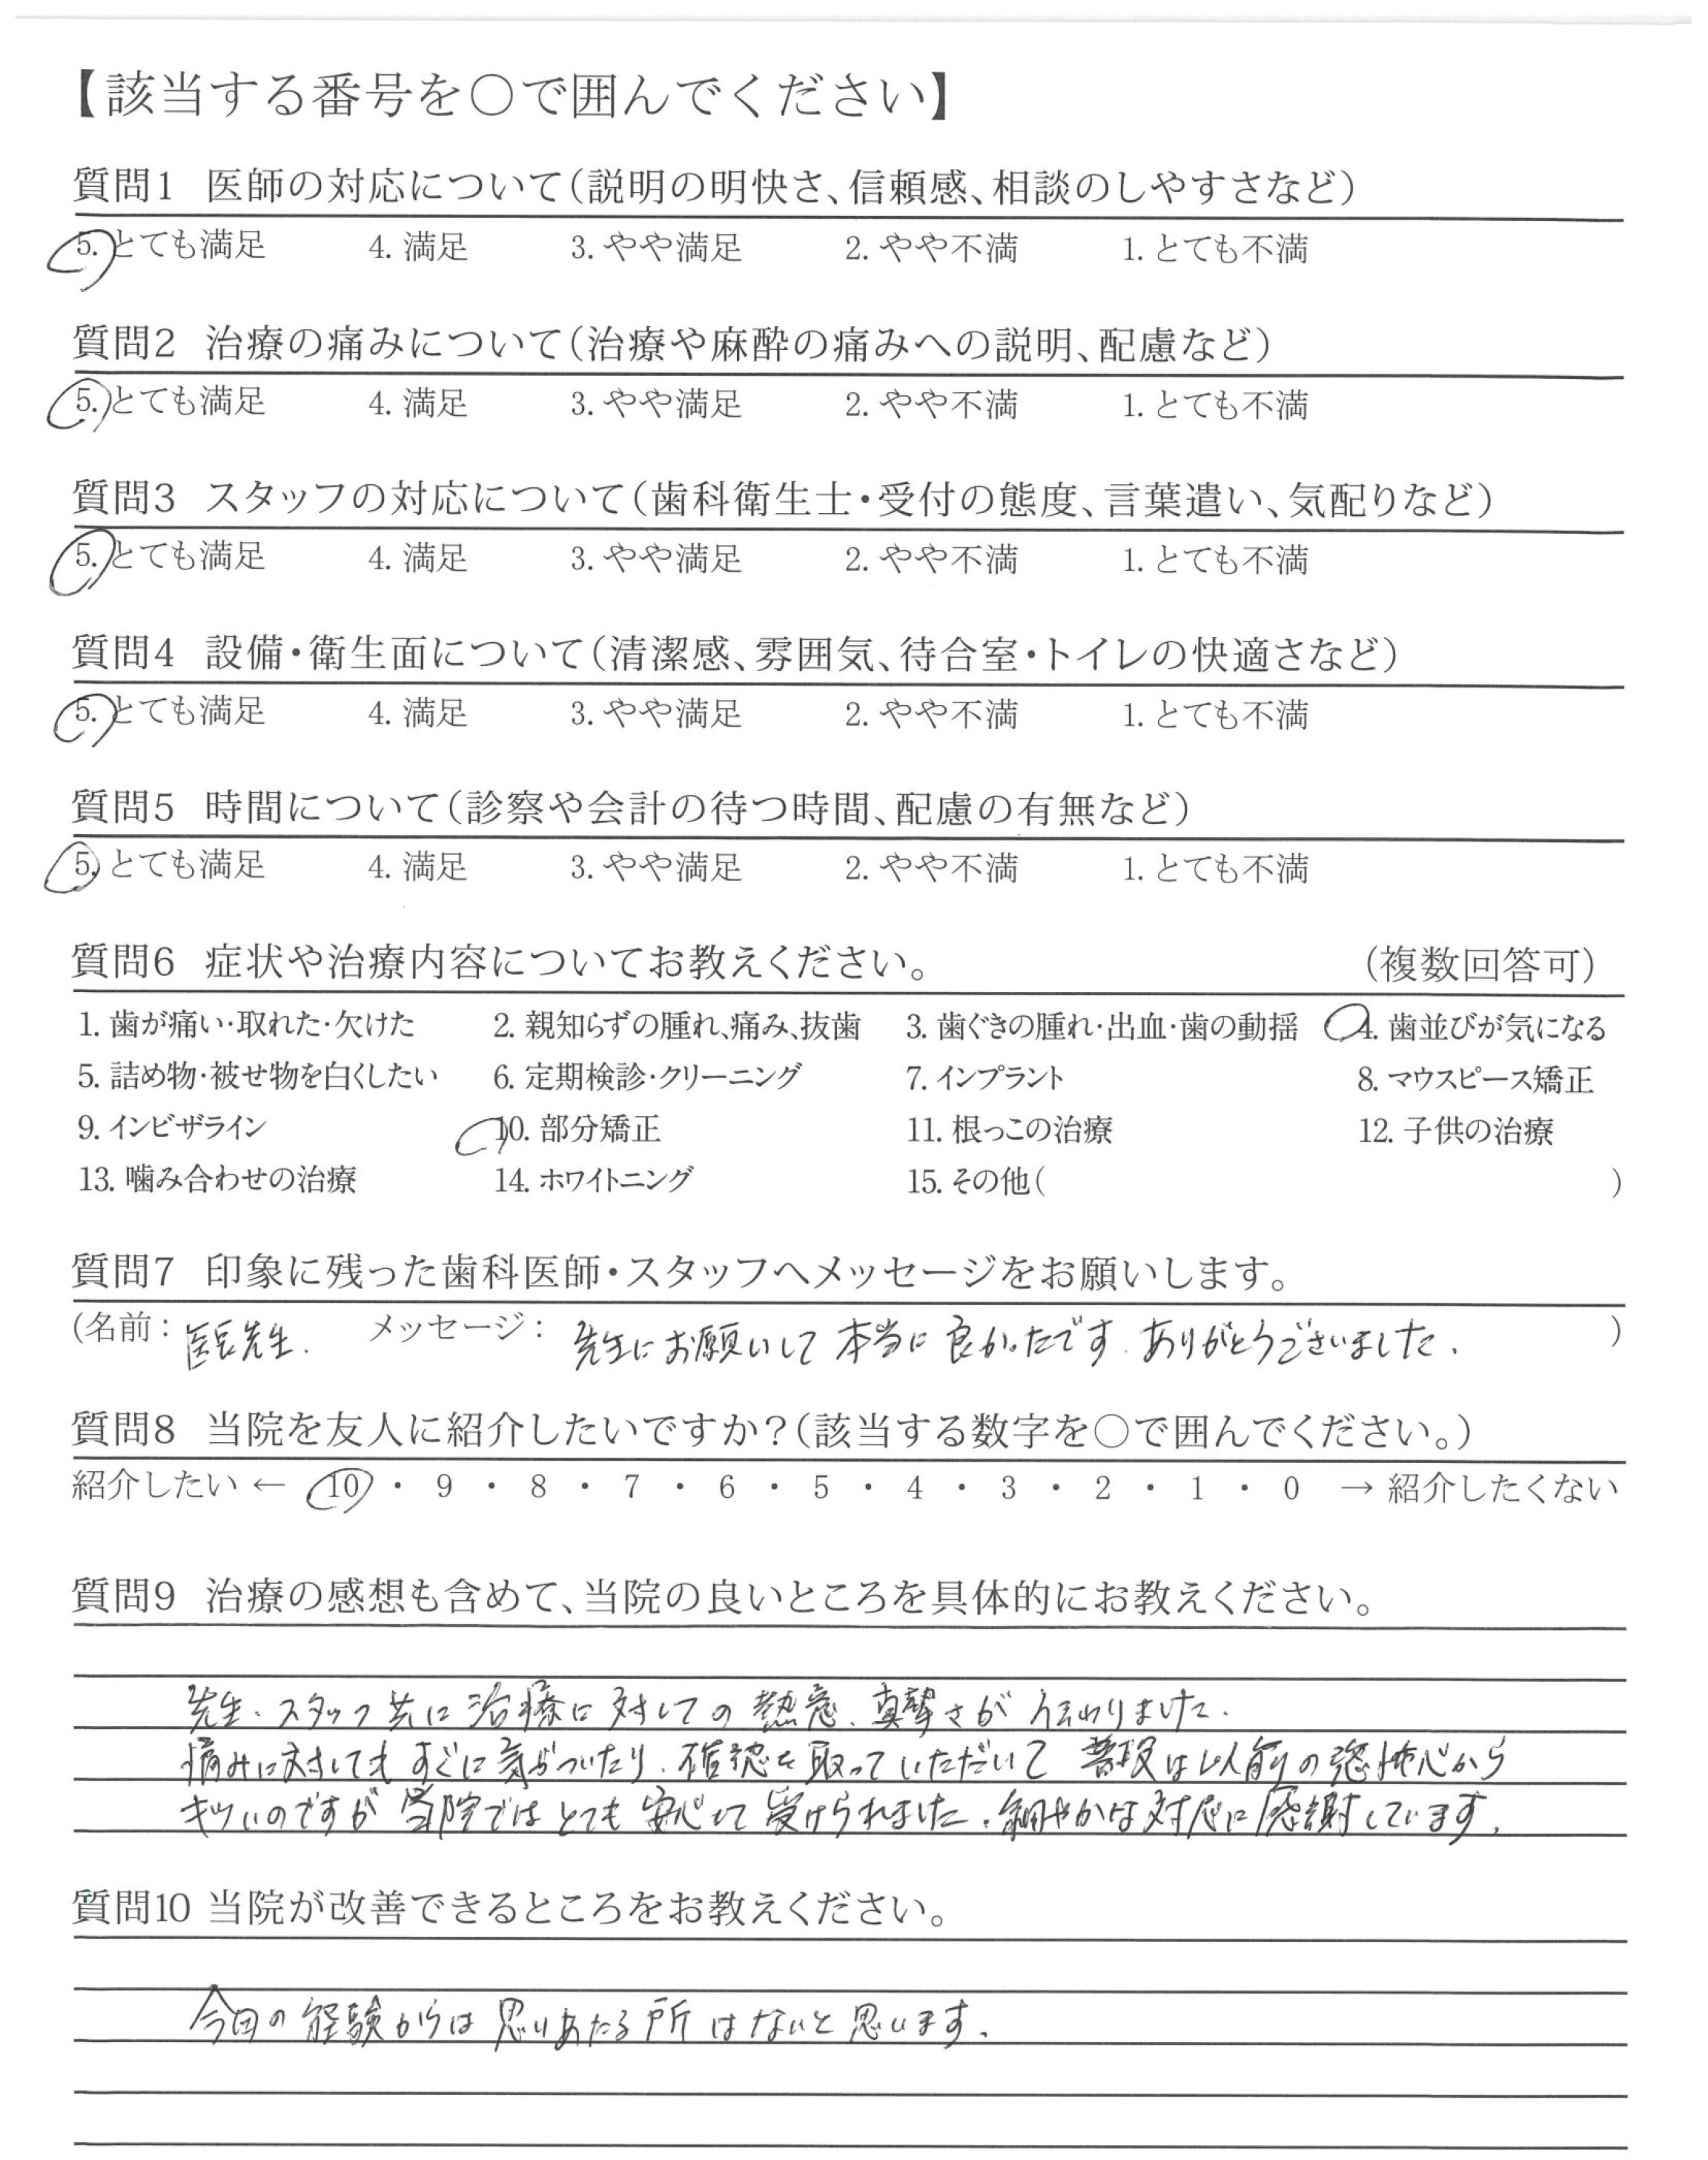 【該当する番号を○で囲んでください】
質問1 医師の対応について(説明の明快さ、信頼感、相談のしやすさなど)
5. とても満足 4. 満足 3. やや満足 2. やや不満 1. とても不満
質問2 治療の痛みについて(治療や麻酔の痛みへの説明、配慮など)
5. とても満足 4. 満足 3. やや満足 2. やや不満 1. とても不満
質問3 スタッフの対応について(歯科衛生士・受付の態度、言葉遣い、気配りなど)
5. とても満足 4. 満足 3. やや満足 2. やや不満 1. とても不満
質問4 設備・衛生面について(清潔感、雰囲気、待合室・トイレの快適さなど)
5. とても満足 4. 満足 3. やや満足 2. やや不満 1. とても不満
質問5 時間について(診察や会計の待つ時間、配慮の有無など)
5. とても満足 4. 満足 3. やや満足 2. やや不満 1. とても不満
質問6 症状や治療内容についてお教えください。 (複数回答可)
1. 歯が痛い・取れた・欠けた 2. 親知らずの腫れ、痛み、抜歯 3. 歯ぐきの腫れ・出血・歯の動揺 4. 歯並びが気になる
5. 詰め物・被せ物を白くしたい 6. 定期検診・クリーニング 7. インプラント 8. マウスピース矯正
9. インビザライン 10. 部分矯正 11. 根っこの治療 12. 子供の治療
13. 噛み合わせの治療 14. ホワイトニング 15. その他( )
質問7 印象に残った歯科医師・スタッフへメッセージをお願いします。
(名前: 先生. メッセージ: 先生にお願いして本当に良かったです. ありがとうございました. )
質問8 当院を友人に紹介したいですか?(該当する数字を○で囲んでください。)
紹介したい ← 10 ・ 9 ・ 8 ・ 7 ・ 6 ・ 5 ・ 4 ・ 3 ・ 2 ・ 1 ・ 0 → 紹介したくない
質問9 治療の感想も含めて、当院の良いところを具体的にお教えください。
先生、スタッフ共に治療に対しての熱意、真摯さが伝わりました.
痛みに対してもすぐに気づいたり、確認を取っていただいて 普段は以前の恐怖心から
キツいのですが当院ではとても安心して受けられました. 細やかな対応に感謝しています.
質問10 当院が改善できるところをお教えください。
今回の経験からは思いあたる所はないと思います.